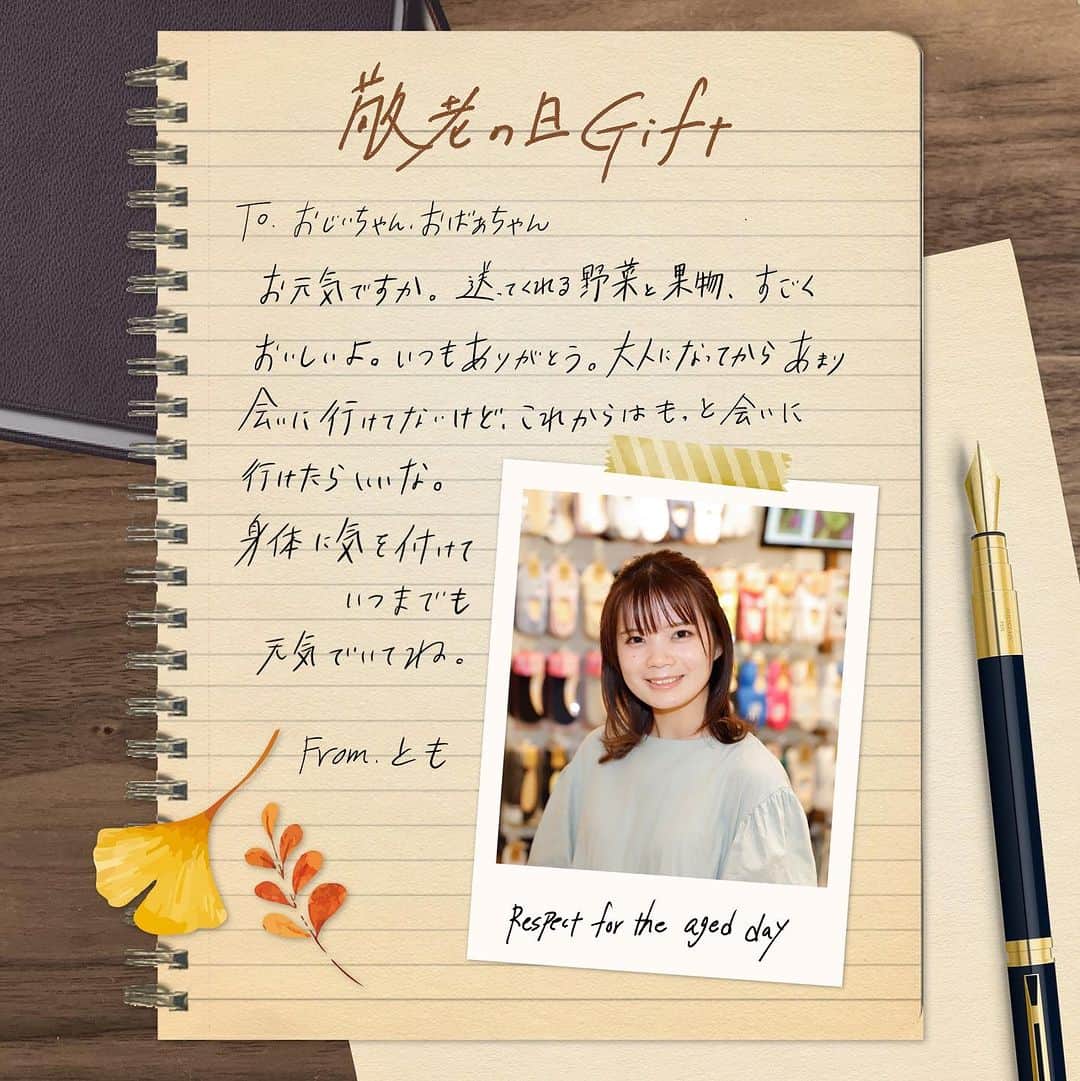 敬老の日Gift
To. おじいちゃん、おばあちゃん
お元気ですか。送ってくれる野菜と果物、すごく
おいしいよ。いつもありがとう。大人になってからあまり
会いに行けてないけど、これからはもっと会いに
行けたらいいな。
身体に気を付けて
いつまでも
元気でいてね。
From. とも
Respect for the aged day